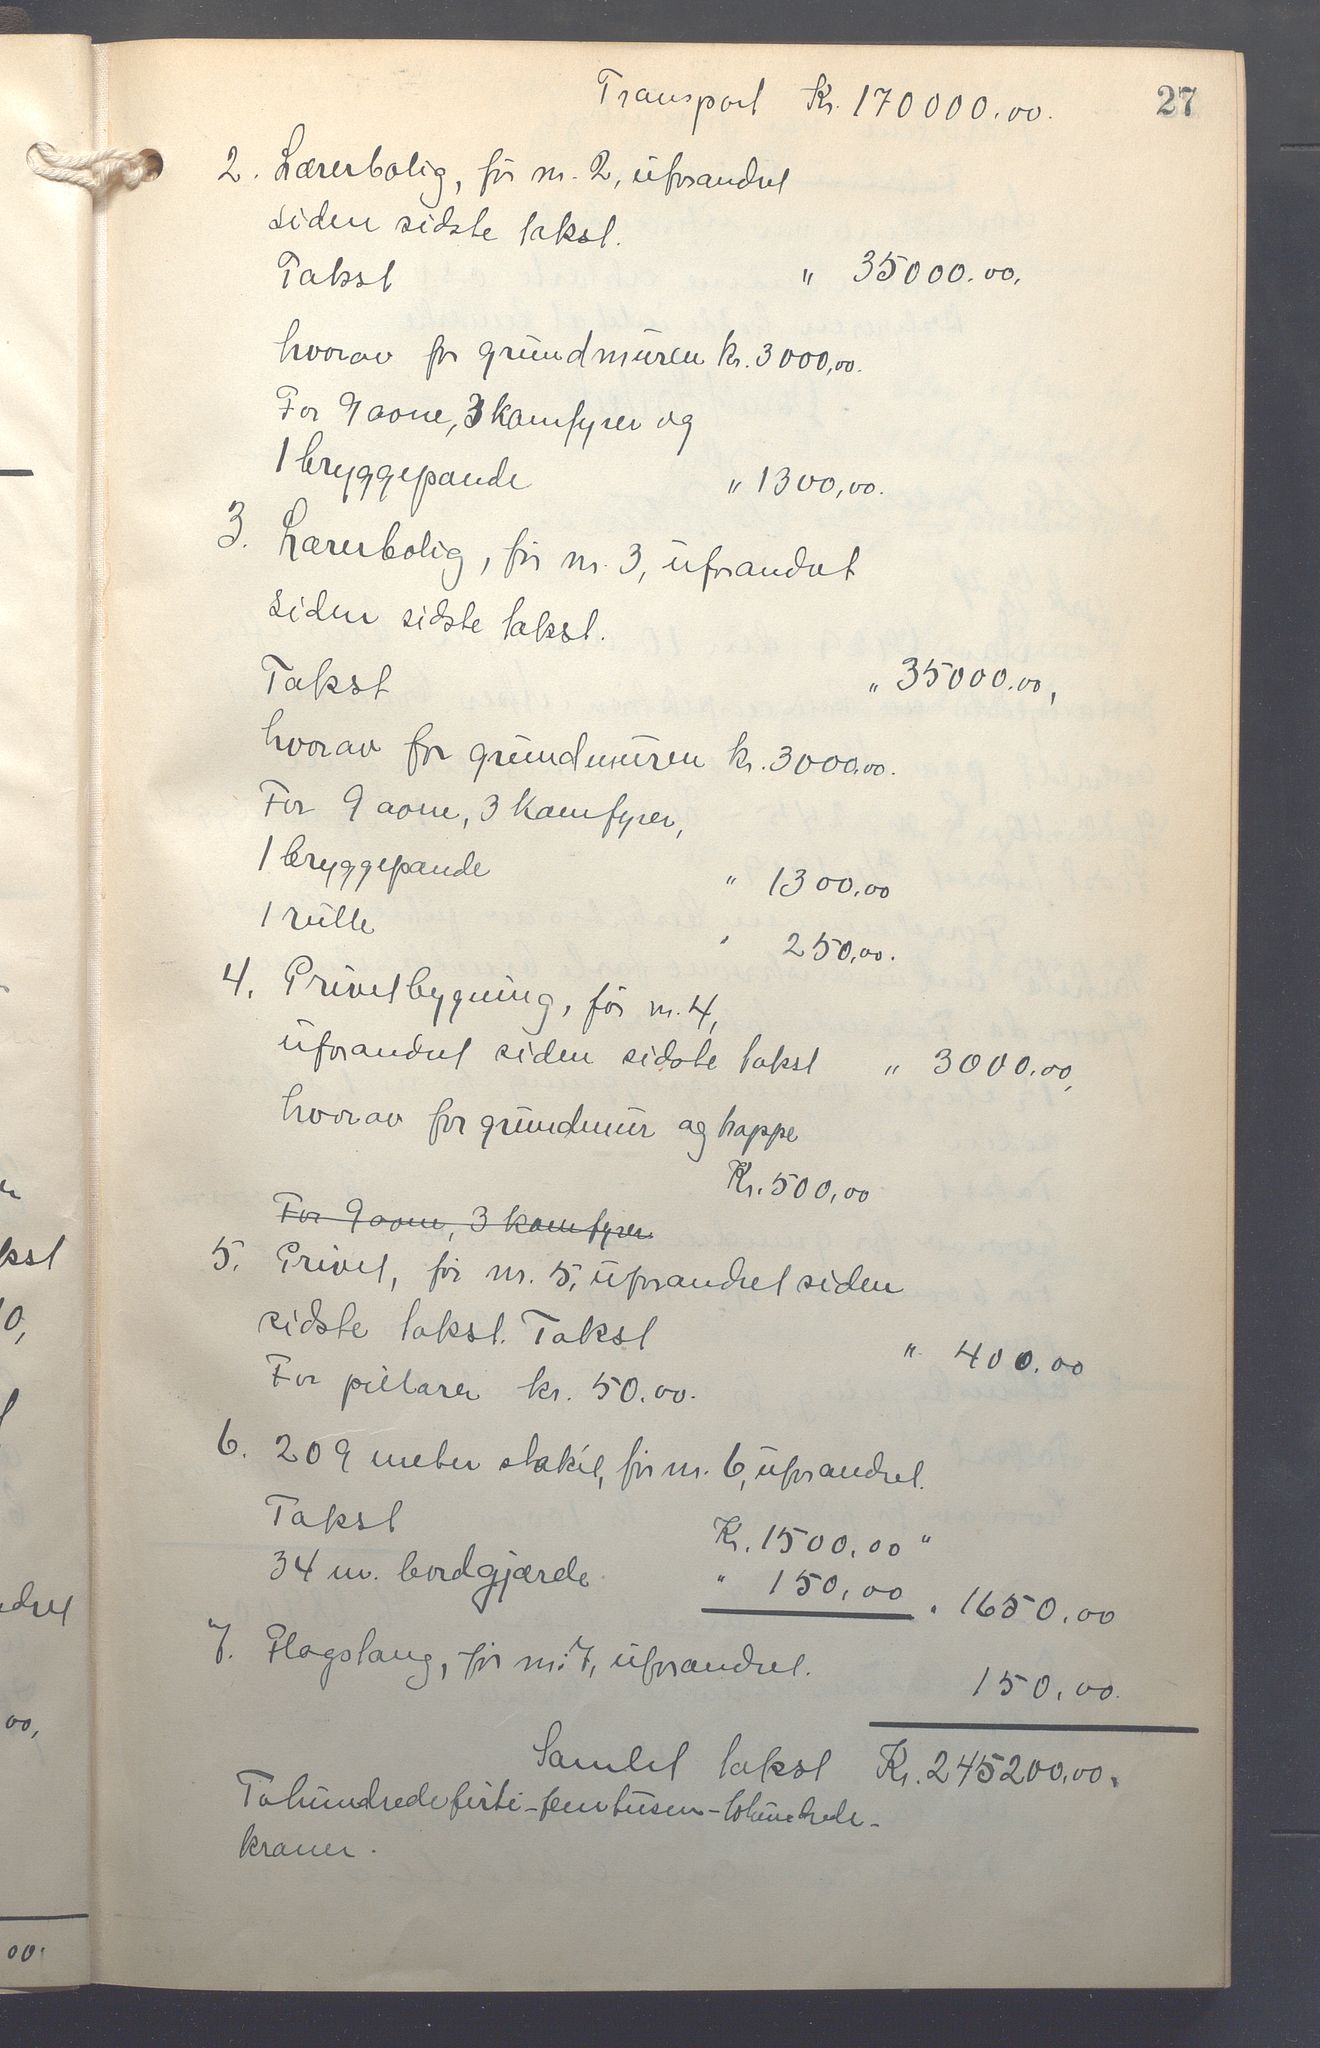 Transport Kr. 170000.00.
27
2. Lærerbolig, før nr. 2, uforandret
siden sidste takst.
Takst " 35000.00,
hvorav for grundmuren kr. 3000,00.
For 9 aone, 3 komfyrer og
1 bryggepande " 1300,00.
3. Lærerbolig, før nr. 3, uforandret
siden sidste takst.
Takst " 35000.00,
hvorav for grundmuren kr. 3000.00.
For 9 aone, 3 komfyrer,
1 bryggepande " 1300.00
1 rulle " 250,00.
4. Privetbygning, før nr. 4,
uforandret siden sidste takst " 3000.00,
hvorav for grundmur og trappe
Kr. 500,00
For 9 aone, 3 komfyrer
5. Privet, før nr. 5, uforandret siden
sidste takst. Takst " 400.00
For pillarer kr. 50.00.
6. 209 meter stakit, før nr. 6, uforandret.
Takst Kr. 1500.00 "
34 m. bordgjærde " 150,00 " 1650.00
7. Flagstang, før nr. 7, uforandret. 150.00.
Samlet takst Kr. 245200.00.
Tohundredeførti-femtusen-tohundrede-
kroner.
kst
0,
dret
00,
00.